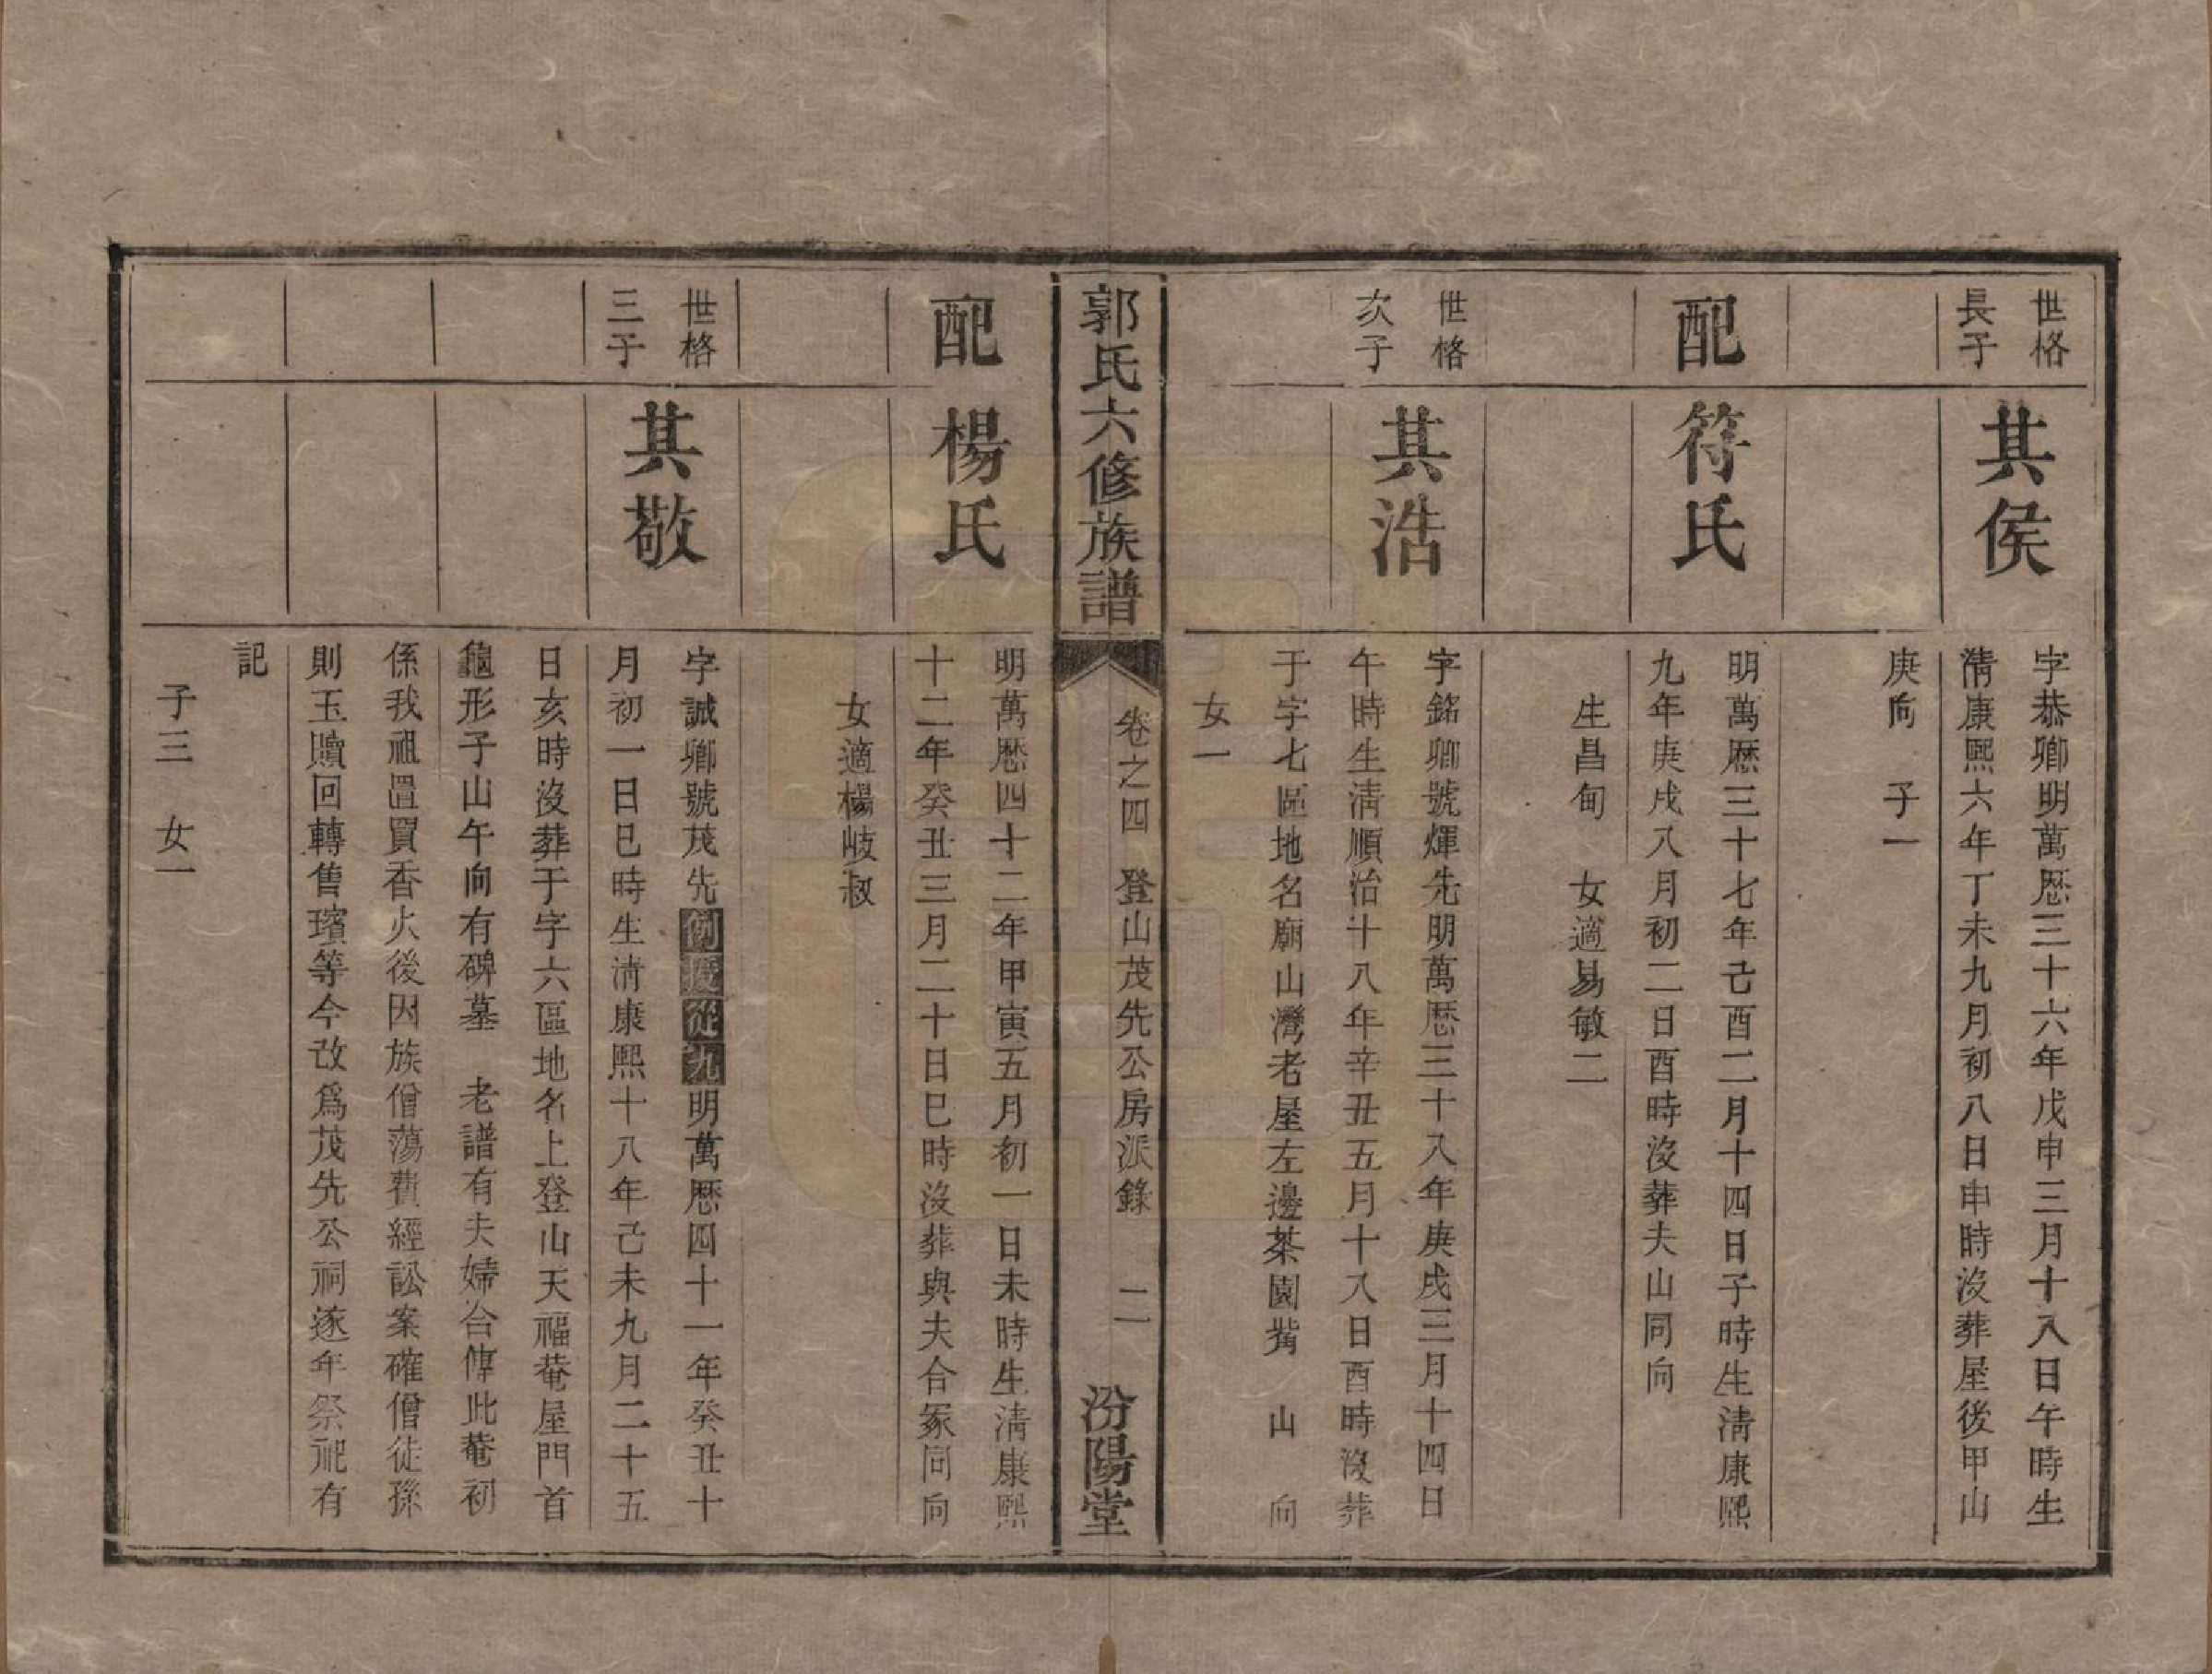 世格
長子
其侯
字恭卿明萬歷三十六年戊申三月十八日午時生
清康熙六年丁未九月初八日申時沒葬屋後甲山
庚向　子一
配
符氏
明萬歷三十七年己酉二月十四日子時生清康熙
九年庚戌八月初二日酉時沒葬夫山同向
生昌甸　女適易敏二
世格
次子
其浩
字銘卿號煇先明萬歷三十八年庚戌三月十四日
午時生清順治十八年辛丑五月十八日酉時沒葬
于字七區地名廟山灣老屋左邊茶園嘴　山　向
女一
郭氏六修族譜
卷之四　登山茂先公房派錄　二
汾陽堂
配
楊氏
明萬歷四十二年甲寅五月初一日未時生清康熙
十二年癸丑三月二十日巳時沒葬與夫合冢同向
女適楊岐叔
世格
三子
其敬
字誠卿號茂先例授從九明萬歷四十一年癸丑十
月初一日巳時生清康熙十八年己未九月二十五
日亥時沒葬于字六區地名上登山天福菴屋門首
龜形子山午向有碑墓　老譜有夫婦合傳此菴初
係我祖置買香火後因族僧蕩費經訟案確僧徒孫
則玉贖回轉售璸等今改爲茂先公祠逐年祭祀有
記
子三　女一